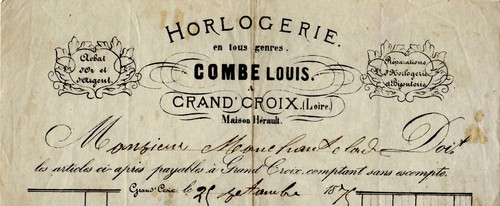 HORLOGERIE.
en tous genres.
COMBE LOUIS.
A
GRAND'CROIX.(Loire)
Maison Hérault.
Achat
d'Or et
d'Argent.
Réparations
d'Horlogerie
et Bijouterie
Monsieur Doit
les articles ci-après payables à Grand Croix, comptant sans escompte.
Grand Croix le 25 septembre 187